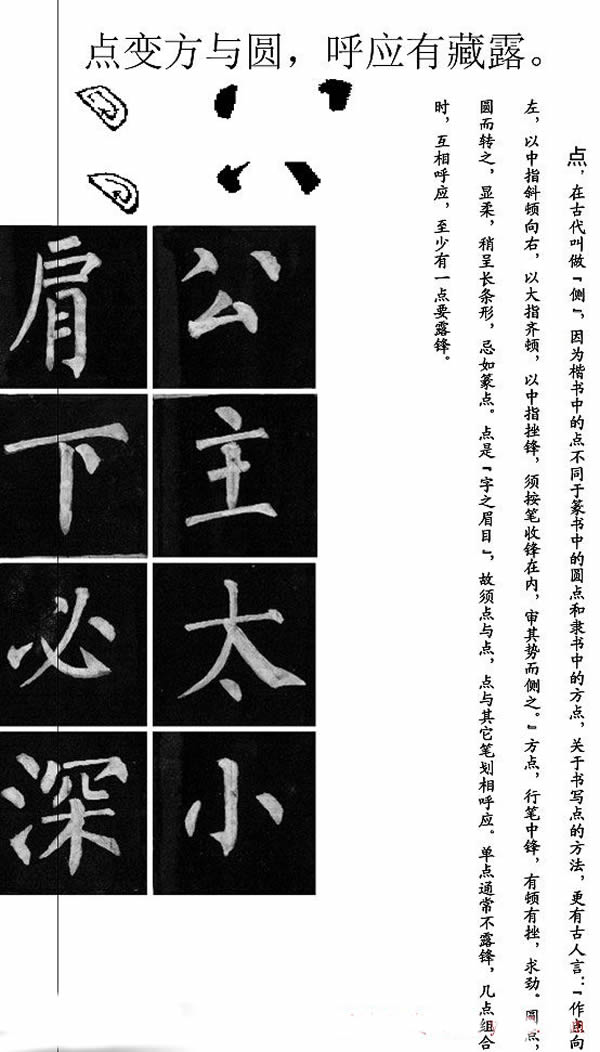 点变方与圆，呼应有藏露。
点，在古代叫做“侧”，因为楷书中的点不同于篆书中的圆点和隶书中的方点，关于书写点的方法，更有古人言：“作点向
左，以中指斜顿向右，以大指齐顿，以中指挫锋，须按笔收锋在内，审其势而侧之。”方点，行笔中锋，有顿有挫，求劲。圆点，
圆而转之，显柔，稍呈长条形，忌如篆点。点是“字之眉目”，故须点与点，点与其它笔划相呼应。单点通常不露锋，几点组合
时，互相呼应，至少有一点要露锋。
公
主
太
小
肩
下
必
深